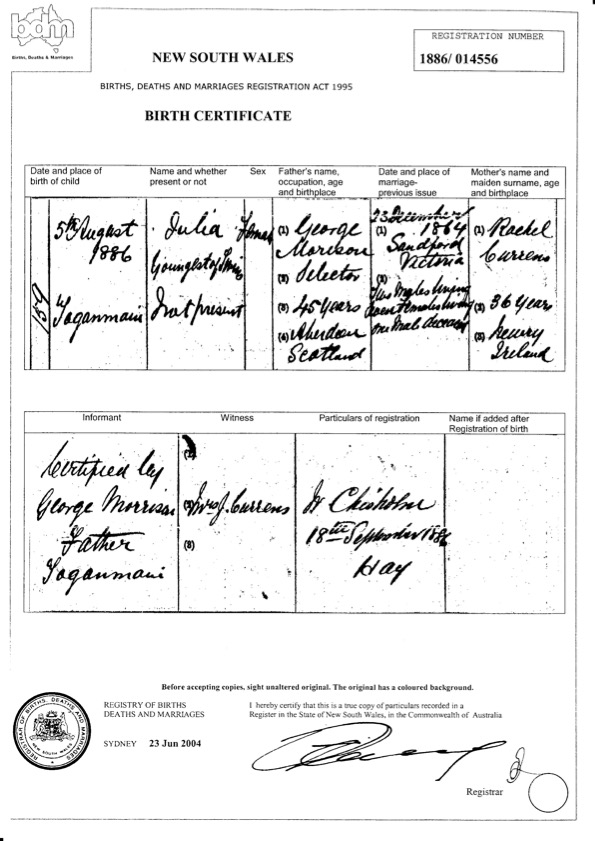 bdm
Births, Deaths & Marriages
REGISTRATION NUMBER
1886/ 014556
NEW SOUTH WALES
BIRTHS, DEATHS AND MARRIAGES REGISTRATION ACT 1995
BIRTH CERTIFICATE
Date and place of
birth of child
Name and whether
present or not
Sex
Father's name,
occupation, age
and birthplace
Date and place of
marriage-
previous issue
Mother's name and
maiden surname, age
and birthplace
5th August
1886
Toganmain
Julia
Youngest of
Not present
(1) George
Morison
(2) Selector
(3) 45 Years
(4) Aberdeen
Scotland
23 December
(1) 1864
Sandford
Victoria
(2)
Males living
Females living
one Male deceased
(1) Rachel
Currens
(2) 36 Years
(3) Newry
Ireland
Informant
Witness
Particulars of registration
Name if added after
Registration of birth
Certified by
George Morrison
Father
Toganmain
(1)
(2) Mrs J. Currens
(3)
W Chisholm
18th September 1886
Hay
Before accepting copies, sight unaltered original. The original has a coloured background.
REGISTRY OF BIRTHS
DEATHS AND MARRIAGES
SYDNEY 23 Jun 2004
I hereby certify that this is a true copy of particulars recorded in a
Register in the State of New South Wales, in the Commonwealth of Australia
REGISTRAR OF BIRTHS, DEATHS AND MARRIAGES
NEW SOUTH WALES
Registrar